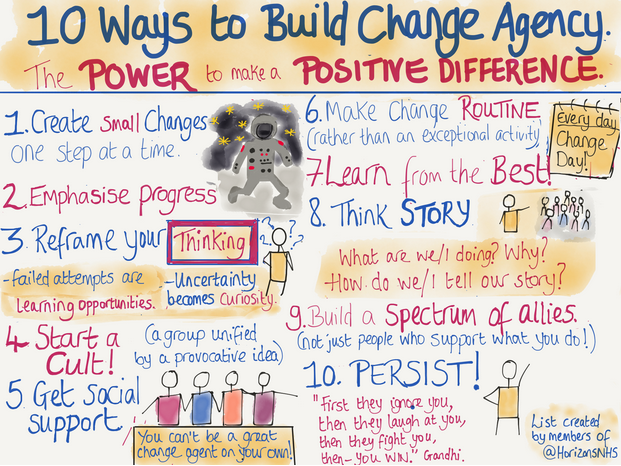 10 Ways to Build Change Agency.
The POWER to make a POSITIVE DIFFERENCE.
1. Create small Changes
one step at a time.
2. Emphasise progress
3. Reframe your Thinking
? ? ?
-failed attempts are
Learning opportunities.
-Uncertainty
becomes Curiosity.
4. Start a
Cult!
(a group unified
by a provocative idea)
5. Get social
support
You can't be a great
change agent on your own!
6. Make Change ROUTINE
(rather than an exceptional activity)
Every day
Change
Day!
7. Learn from the Best!
8. Think STORY
What are we/I doing? Why?
-How do we/I tell our story?
9. Build a Spectrum of allies.
(not just people who support what you do!)
10. PERSIST!
"First they ignore you,
then they laugh at you,
then they fight you,
then-you WIN." Gandhi.
List created
by members of
@HorizonsNHS